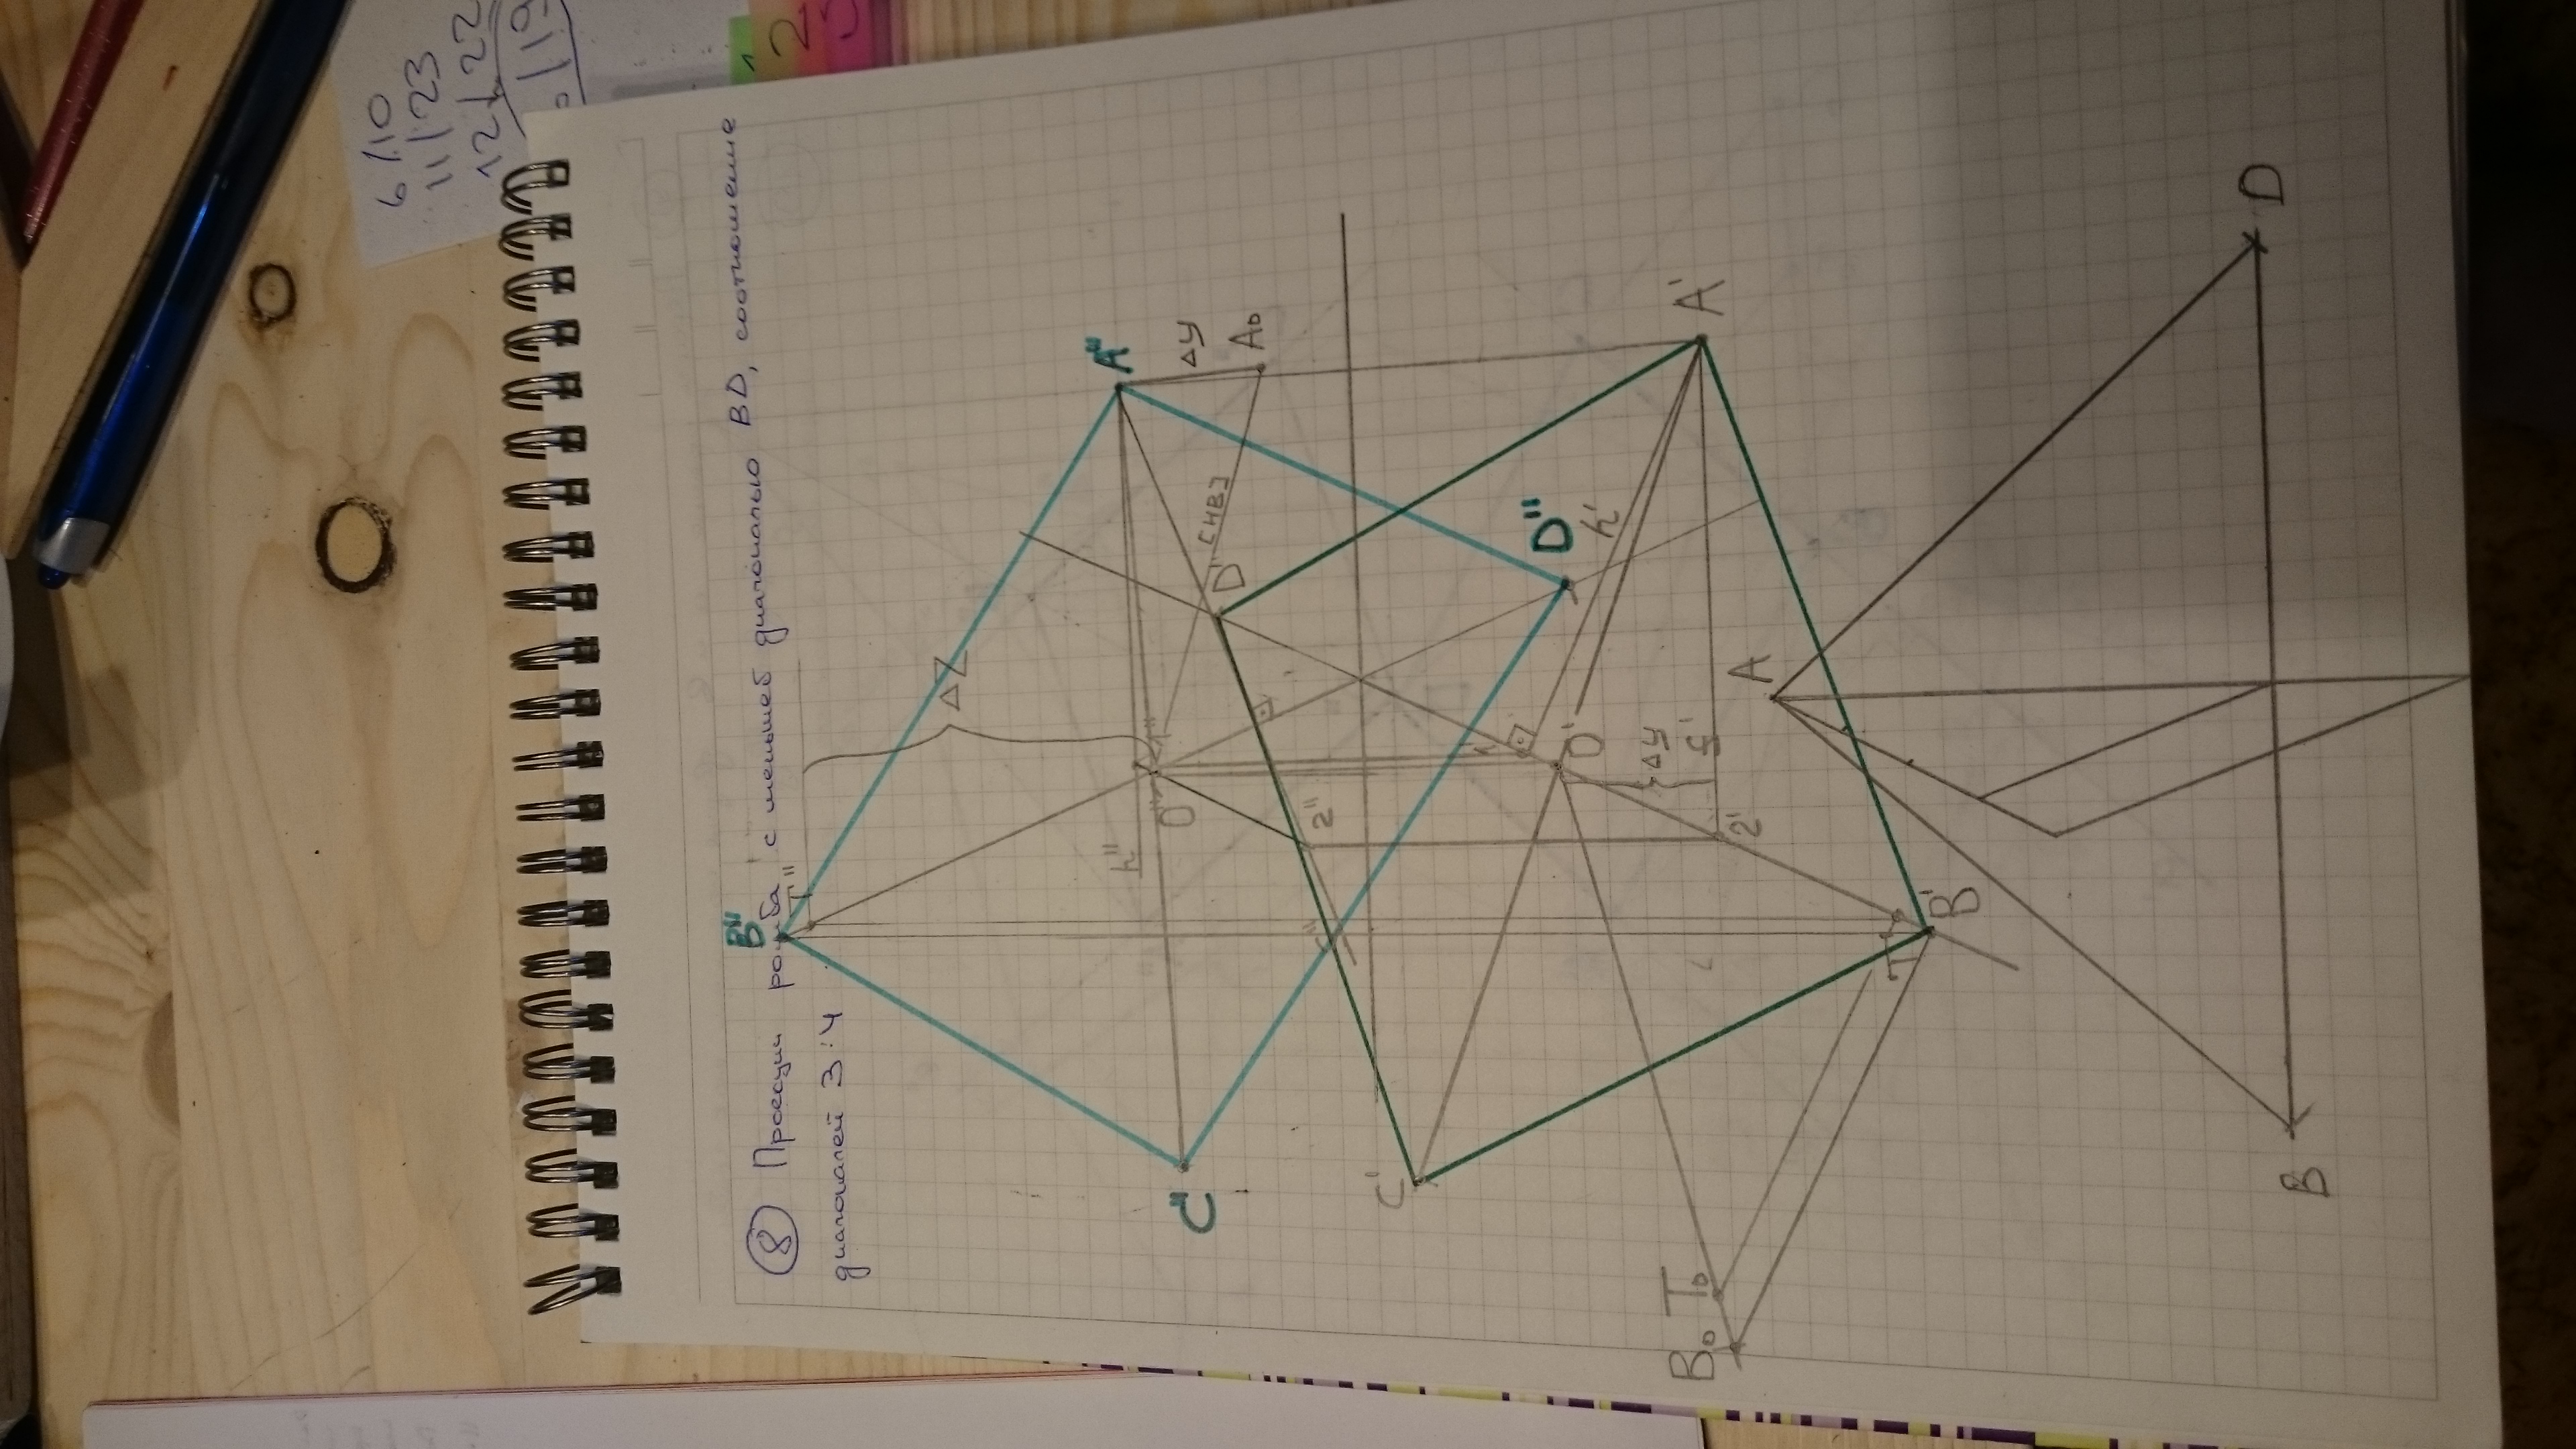 6/10
11/23
12/22
/19
1
2
B"
⑧ Проекции ромба с меньшей диагональю BD, соотношение
T"
диагоналей 3:4
ΔZ
h"
A"
O" 1"
C"
Δy
[HB]
D'
A₀
2"
C'
1'
D"
O'
h'
Δy
B₀ T₀
f'
A'
2'
A
T'
B'
B
D